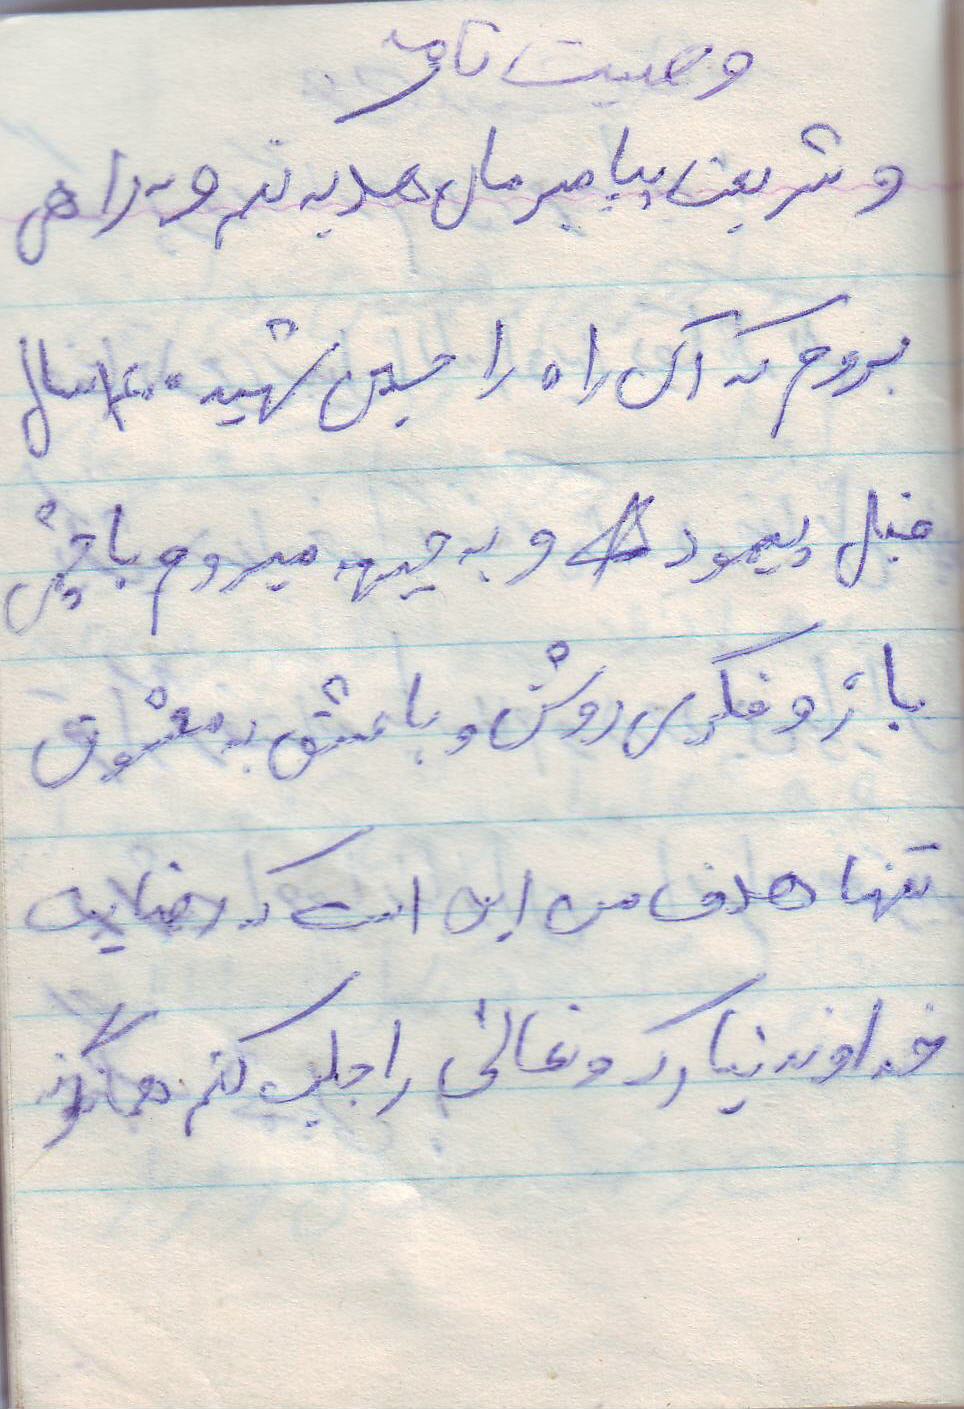 وصیت نامه
و شریعت پیامبرمان هدیه کنم و به راهی
بروم که آن راه را حسین شهید ۱۴۰۰ سال
قبل پیمود و به جبهه میروم با چشمی
باز و فکری روشن و با عشق به معشوق
تنها هدف من این است که رضایت
خداوند تبارک و تعالی را جلب کنم همانگونه